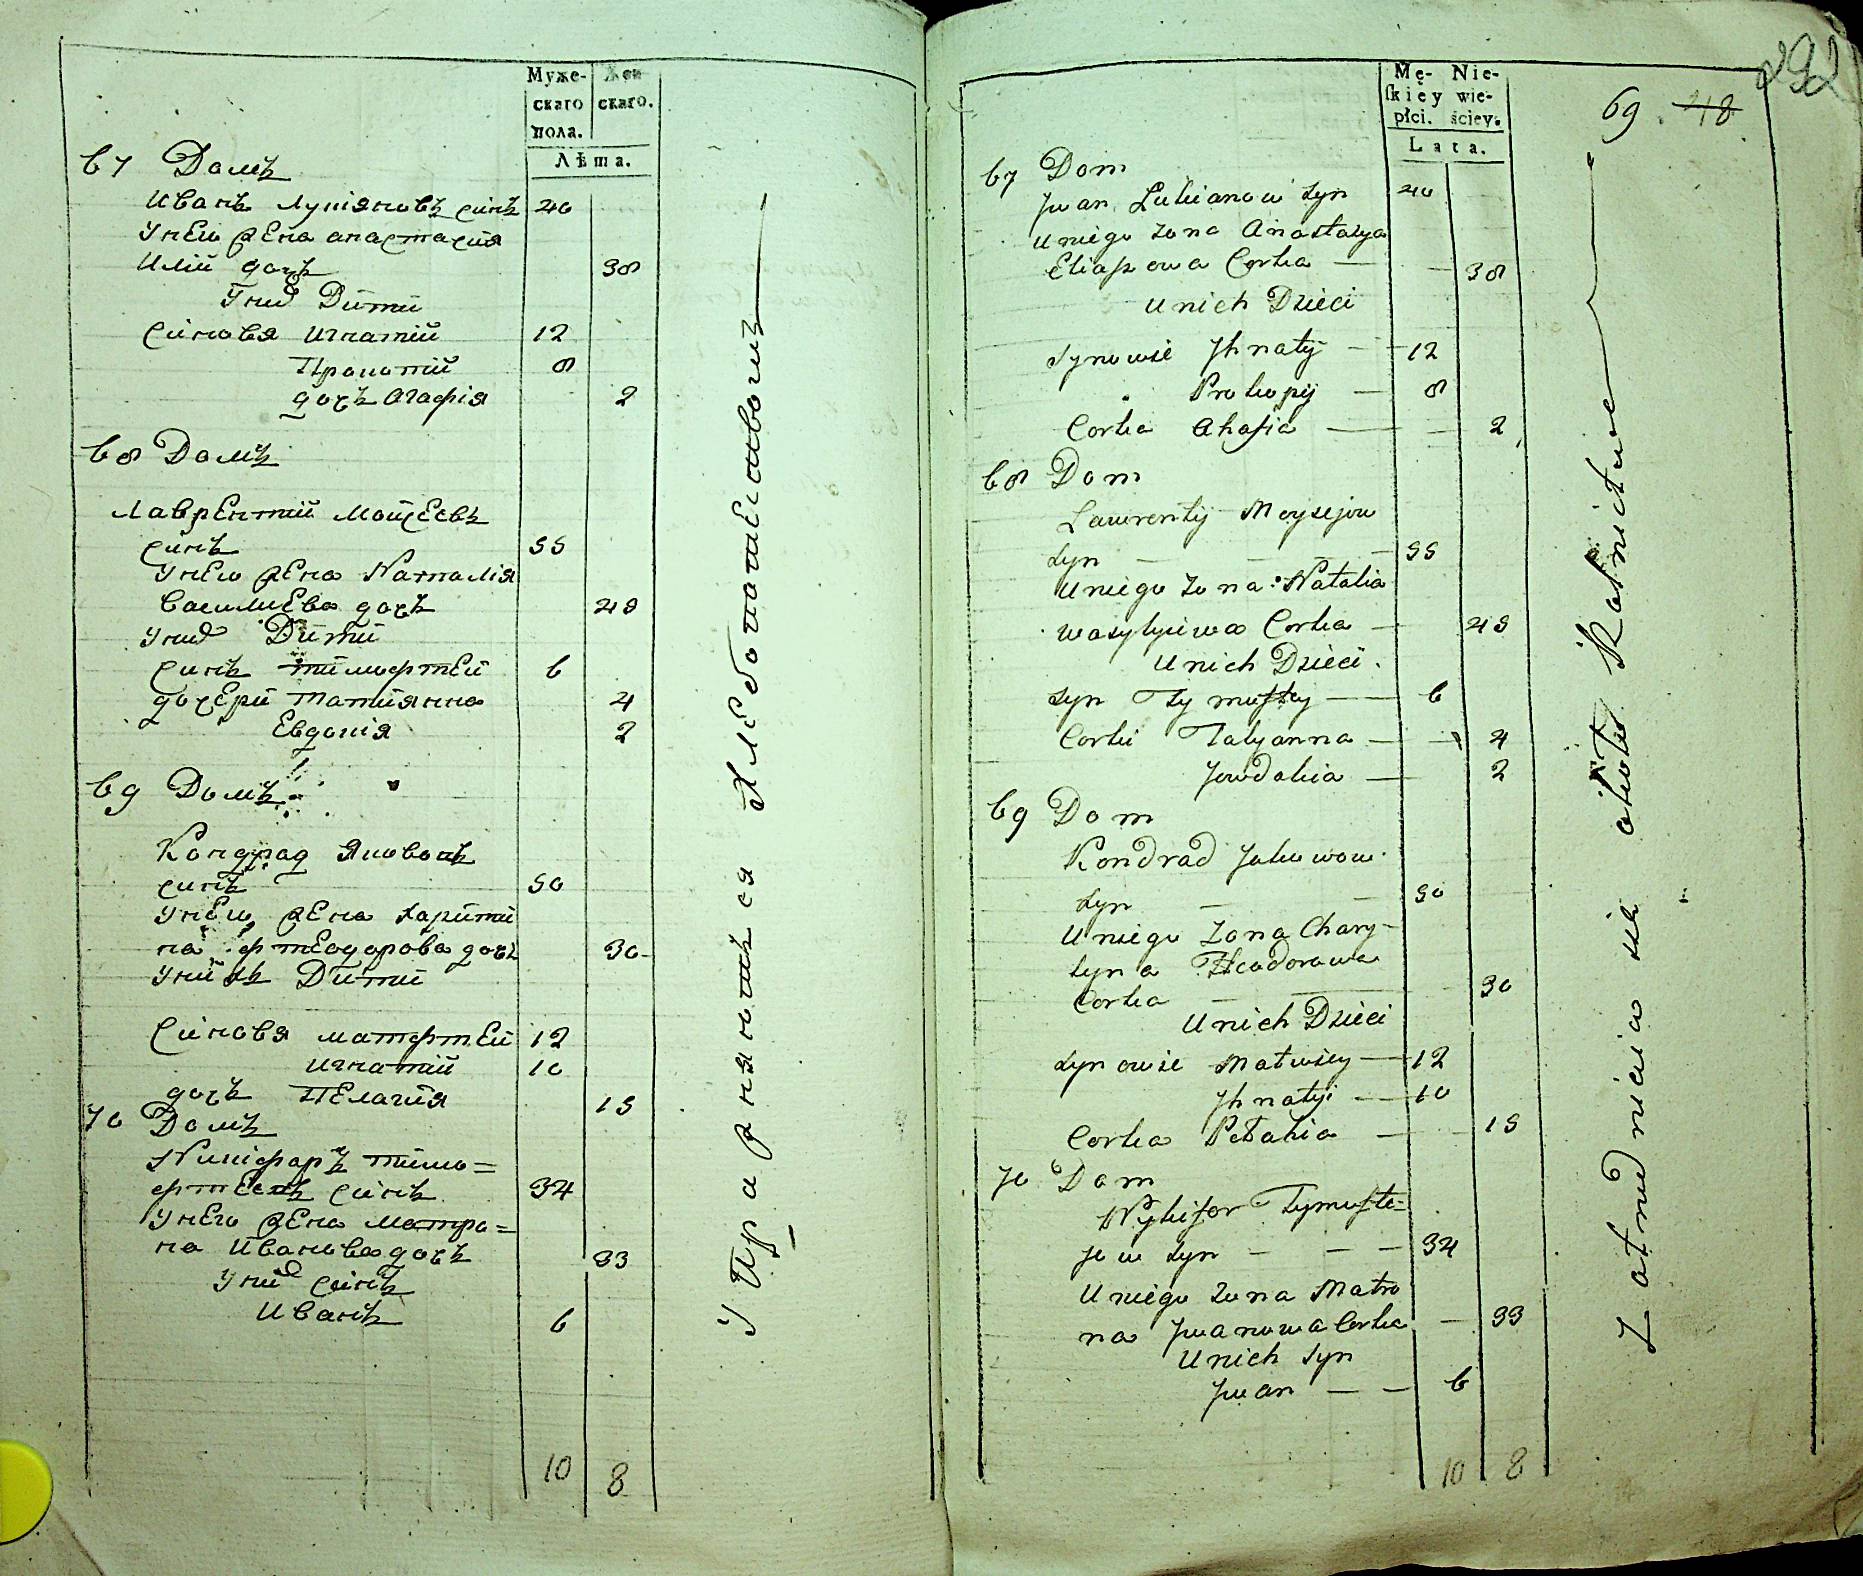 Муже-
скаго
пола.
Жен
скаго.
Лѣта.
67 Домъ
Иванъ Лукіяновъ синъ 40
У него жена анастасия
Илии дочъ 38
У них Дити
синовя Игнатий 12
Прокопий 8
дочъ Агафія 2
68 Домъ
Лаврентий Мойсеевъ
синъ 55
У него жена Наталія
Василиева дочъ 45
У них Дити
синъ тимофтей 6
дочери татиянна 4
Евдокія 2
69 Домъ
Кондрад Якововъ
синъ 50
У него жена харити
на фтеодорова дочъ 30
У них Дити
Синовя матфтей 12
Игнатий 10
дочъ Пелагия 15
70 Домъ
Никифоръ тимо=
фтеевъ синъ 34
У него жена матро=
на Иванова дочъ 33
У них синъ
Иванъ 6
10 8
Упражняютъся хлебопашеством
292
69. 48
Mę-
ſkiey
płci.
Nie-
wie-
ściey.
Lata.
67 Dom
Jwan Lukianow Syn 40
Uniego zona Anastazya
Eliaszowa Corka — — 38
Unich Dzieci
Synowie Jhnatÿ — 12
Prokopÿ — 8
Corka Ahafia — — 2
68 Dom
Lawrentÿ Moysejow
Syn — — — 55
Uniego zona Natalia
Wasylyiewa Corka — 45
Unich Dzieci
Syn Tymuftey — 6
Corki Tatyanna — — 4
Jewdokia — 2
69 Dom
Kondrad Jakowow
Syn — — 50
Uniego Zona Chary-
tyna Fteodorowa
Corka — — 30
Unich Dzieci
Synowie Matwiey — 12
Jhnatyi — 10
Corka Pelahia — — 15
70 Dom
Nykifor Tymufte=
jow Syn — — — 34
Uniego zona Matro
na Jwanowa Corka — 33
Unich Syn
Jwan — — 6
10 8
Zatrudniaia sie około Rolnictwa